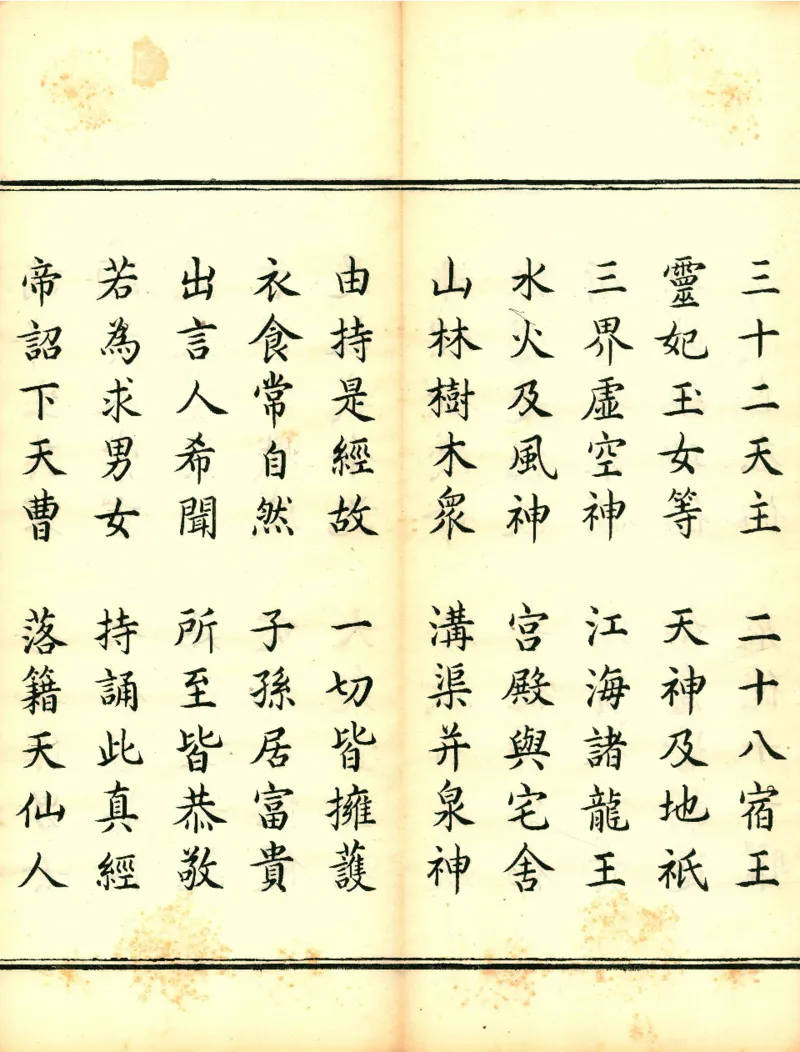 三十二天主　二十八宿王
靈妃玉女等　天神及地祇
三界虛空神　江海諸龍王
水火及風神　宮殿與宅舍
山林樹木眾　溝渠并泉神
由持是經故　一切皆擁護
衣食常自然　子孫居富貴
出言人希聞　所至皆恭敬
若為求男女　持誦此真經
帝詔下天曹　落籍天仙人